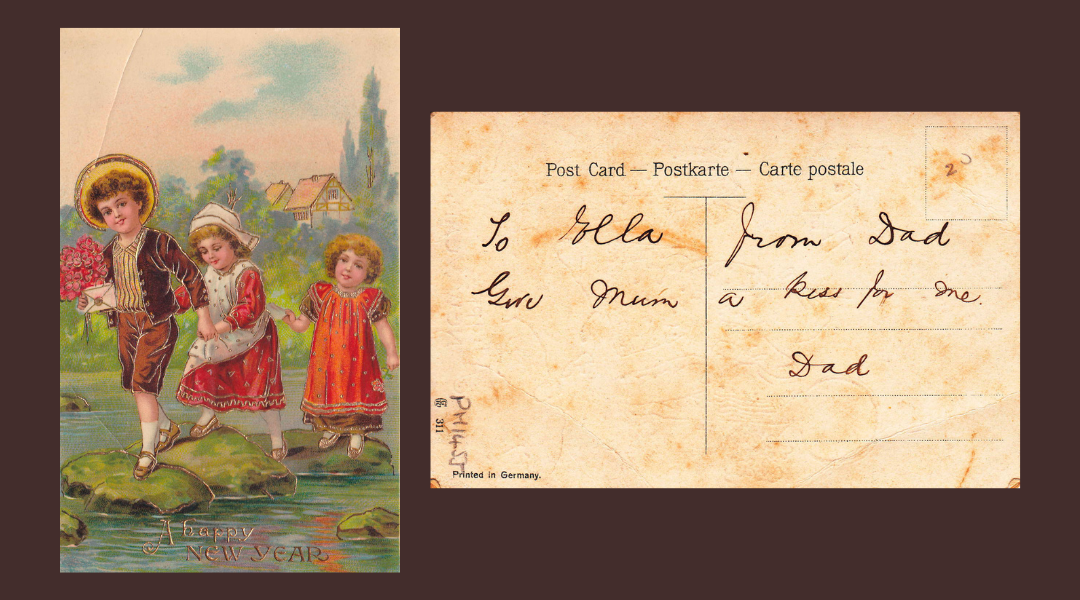 A happy
NEW YEAR
Post Card — Postkarte — Carte postale
To Ella from Dad
Give Mum a kiss for me.
Dad
311
Printed in Germany.